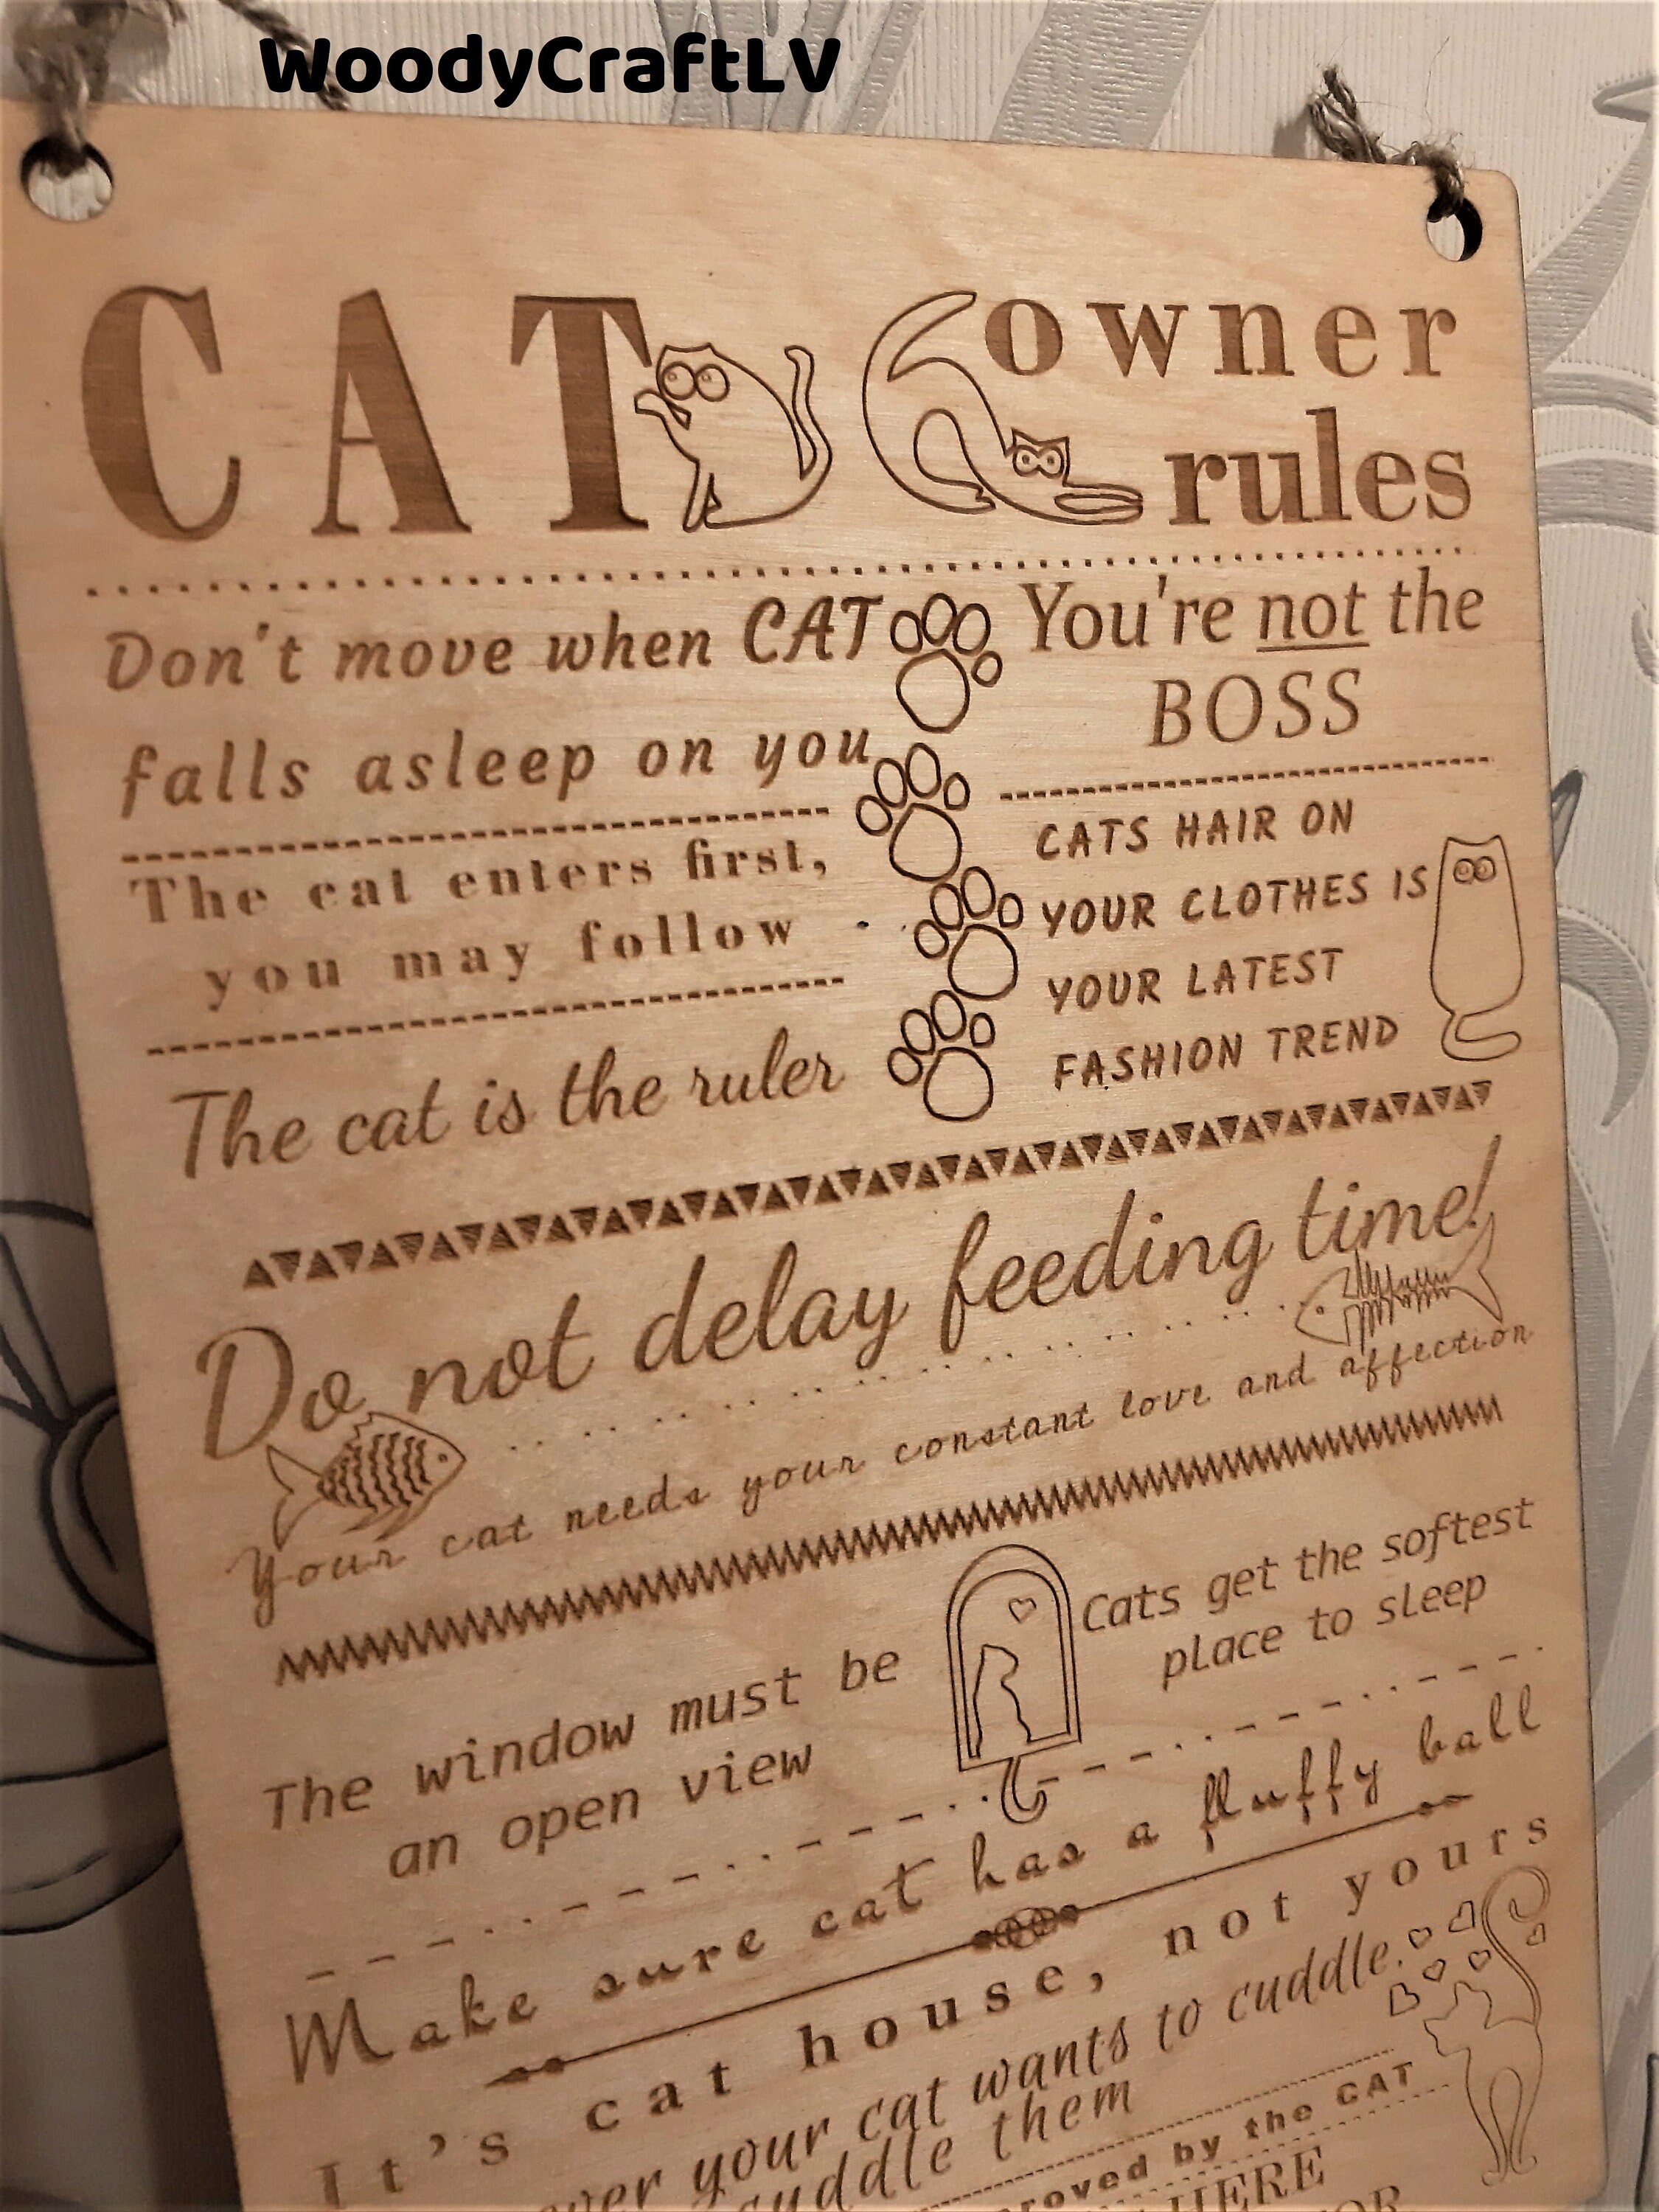 WoodyCraftLV
CAT owner
rules
Don't move when CAT
falls asleep on you
You're not the
BOSS
The cat enters first,
you may follow
CATS HAIR ON
YOUR CLOTHES IS
YOUR LATEST
FASHION TREND
The cat is the ruler
Do not delay feeding time!
Your cat needs your constant love and affection
The window must be
an open view
Cats get the softest
place to sleep
Make sure cat has a fluffy ball
It's cat house, not yours
your cat wants to cuddle.
cuddle them
by the CAT
HERE